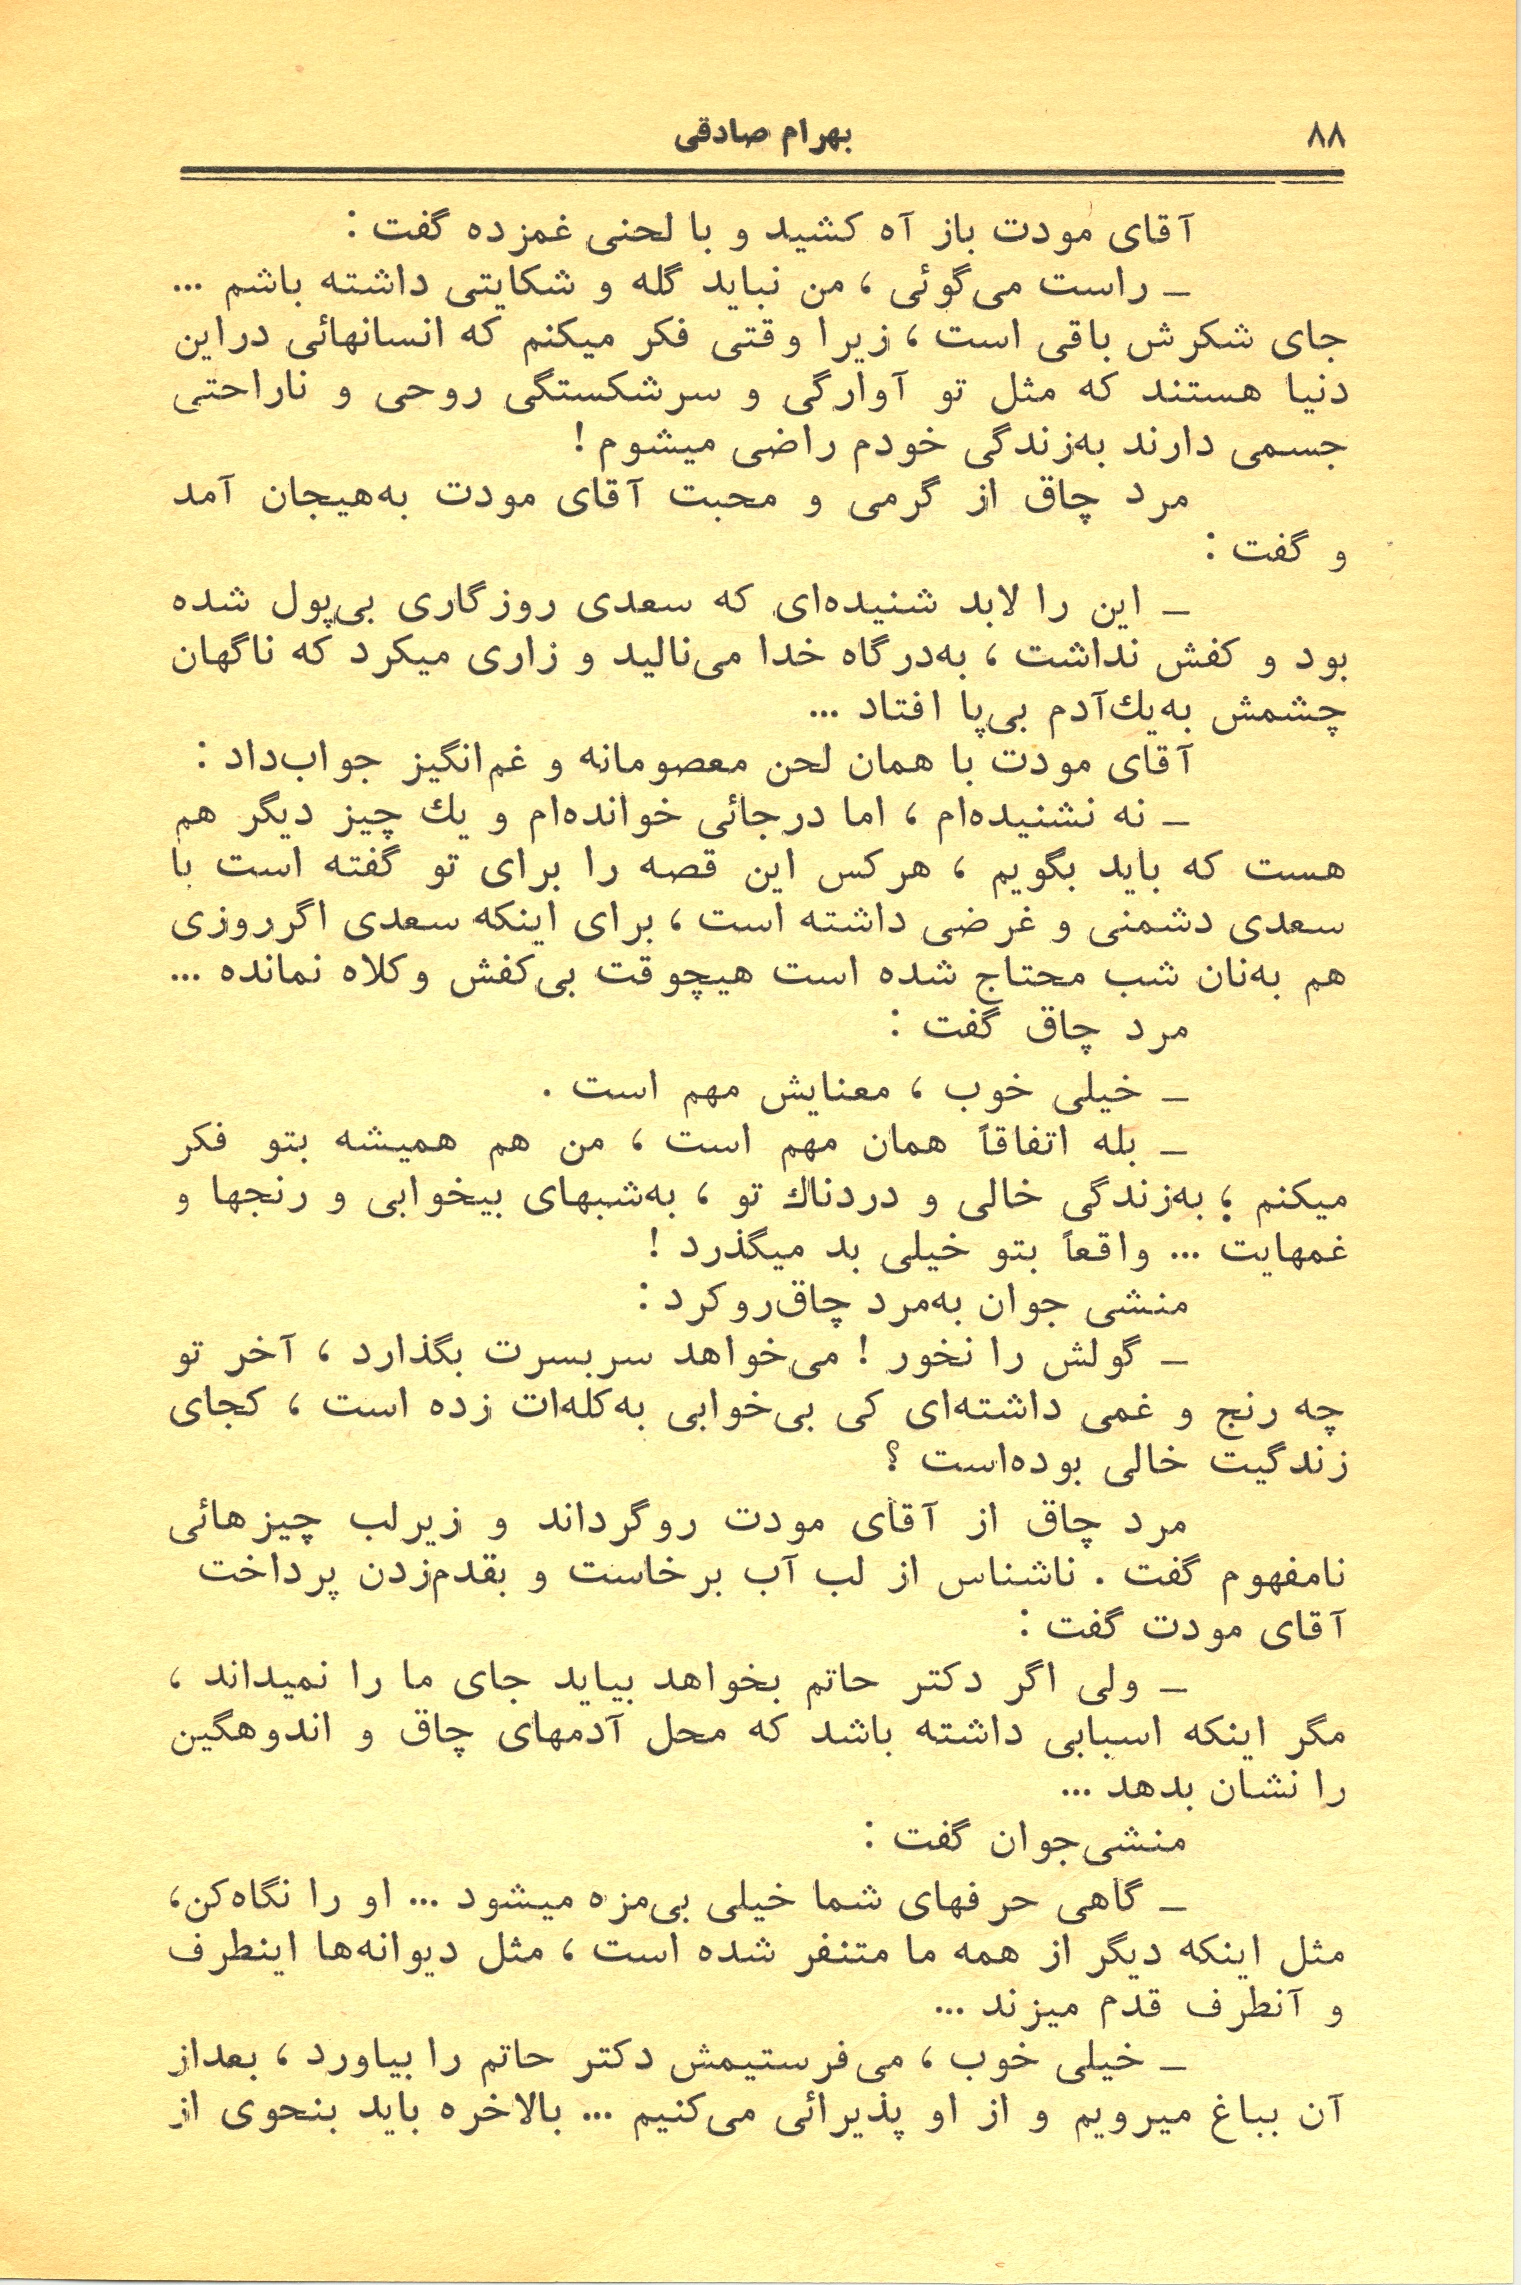 ۸۸
بهرام صادقی
آقای مودت باز آه کشید و با لحنی غمزده گفت :
ـ راست می‌گوئی ، من نباید گله و شکایتی داشته باشم ...
جای شکرش باقی است ، زیرا وقتی فکر میکنم که انسانهائی دراین
دنیا هستند که مثل تو آوارگی و سرشکستگی روحی و ناراحتی
جسمی دارند به‌زندگی خودم راضی میشوم !
مرد چاق از گرمی و محبت آقای مودت به‌هیجان آمد
و گفت :
ـ این را لابد شنیده‌ای که سعدی روزگاری بی‌پول شده
بود و کفش نداشت ، به‌درگاه خدا می‌نالید و زاری میکرد که ناگهان
چشمش به‌یك‌آدم بی‌پا افتاد ...
آقای مودت با همان لحن معصومانه و غم‌انگیز جواب‌داد :
ـ نه نشنیده‌ام ، اما درجائی خوانده‌ام و یك چیز دیگر هم
هست که باید بگویم ، هرکس این قصه را برای تو گفته است با
سعدی دشمنی و غرضی داشته است ، برای اینکه سعدی اگرروزی
هم به‌نان شب محتاج شده است هیچوقت بی‌کفش وکلاه نمانده ...
مرد چاق گفت :
ـ خیلی خوب ، معنایش مهم است .
ـ بله اتفاقاً همان مهم است ، من هم همیشه بتو فکر
میکنم ؛ به‌زندگی خالی و دردناك تو ، به‌شبهای بیخوابی و رنجها و
غمهایت ... واقعاً بتو خیلی بد میگذرد !
منشی جوان به‌مرد چاق‌روکرد :
ـ گولش را نخور ! می‌خواهد سربسرت بگذارد ، آخر تو
چه رنج و غمی داشته‌ای کی بی‌خوابی به‌کله‌ات زده است ، کجای
زندگیت خالی بوده‌است ؟
مرد چاق از آقای مودت روگرداند و زیرلب چیزهائی
نامفهوم گفت . ناشناس از لب آب برخاست و بقدم‌زدن پرداخت
آقای مودت گفت :
ـ ولی اگر دکتر حاتم بخواهد بیاید جای ما را نمیداند ،
مگر اینکه اسبابی داشته باشد که محل آدمهای چاق و اندوهگین
را نشان بدهد ...
منشی‌جوان گفت :
ـ گاهی حرفهای شما خیلی بی‌مزه میشود ... او را نگاه‌کن،
مثل اینکه دیگر از همه ما متنفر شده است ، مثل دیوانه‌ها اینطرف
و آنطرف قدم میزند ...
ـ خیلی خوب ، می‌فرستیمش دکتر حاتم را بیاورد ، بعداز
آن بباغ میرویم و از او پذیرائی می‌کنیم ... بالاخره باید بنحوی از